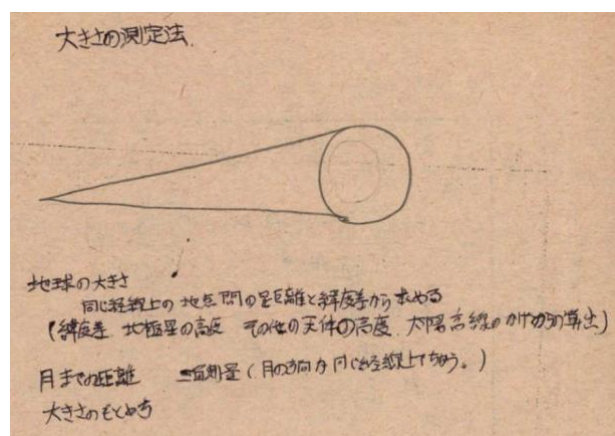 大きさの測定法.
地球の大きさ
同じ経線上の地点間の距離と緯度差から求める
(緯度差 北極星の高度 その他の天体の高度 太陽高 のかげから算出)
月までの距離 三角測量(月の方向が同じ経線上でちがう。)
大きさのもとめ方